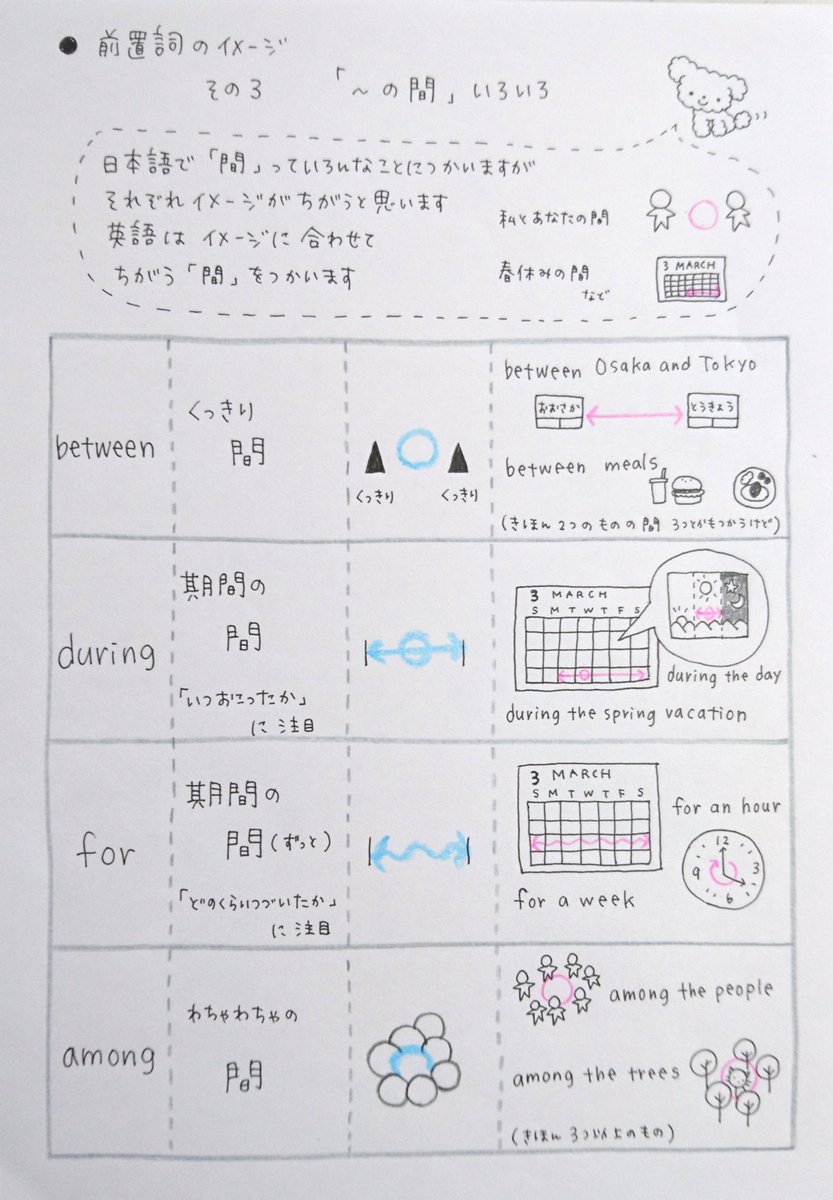 ● 前置詞のイメージ
その3 「～の間」いろいろ
日本語で「間」っていろんなことにつかいますが
それぞれイメージがちがうと思います
英語はイメージに合わせて
ちがう「間」をつかいます
私とあなたの間
春休みの間
など
3 MARCH
between
くっきり
間
くっきり くっきり
between Osaka and Tokyo
おおさか とうきょう
between meals
(きほん2つのものの間 3つとかもつかうけど)
during
期間の
間
「いつおこったか」
に注目
3 MARCH
S M T W T F S
during the day
during the spring vacation
for
期間の
間(ずっと)
「どのくらいつづいたか」
に注目
3 MARCH
S M T W T F S
for a week
for an hour
12
9 3
6
among
わちゃわちゃの
間
among the people
among the trees
(きほん3つ以上のもの)